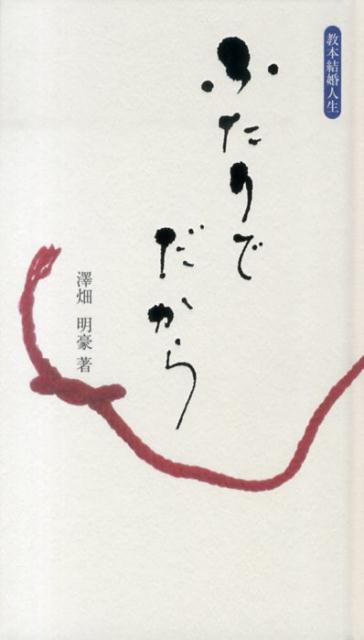 教本結婚人生
ふたりで
だから
澤畑 明豪 著